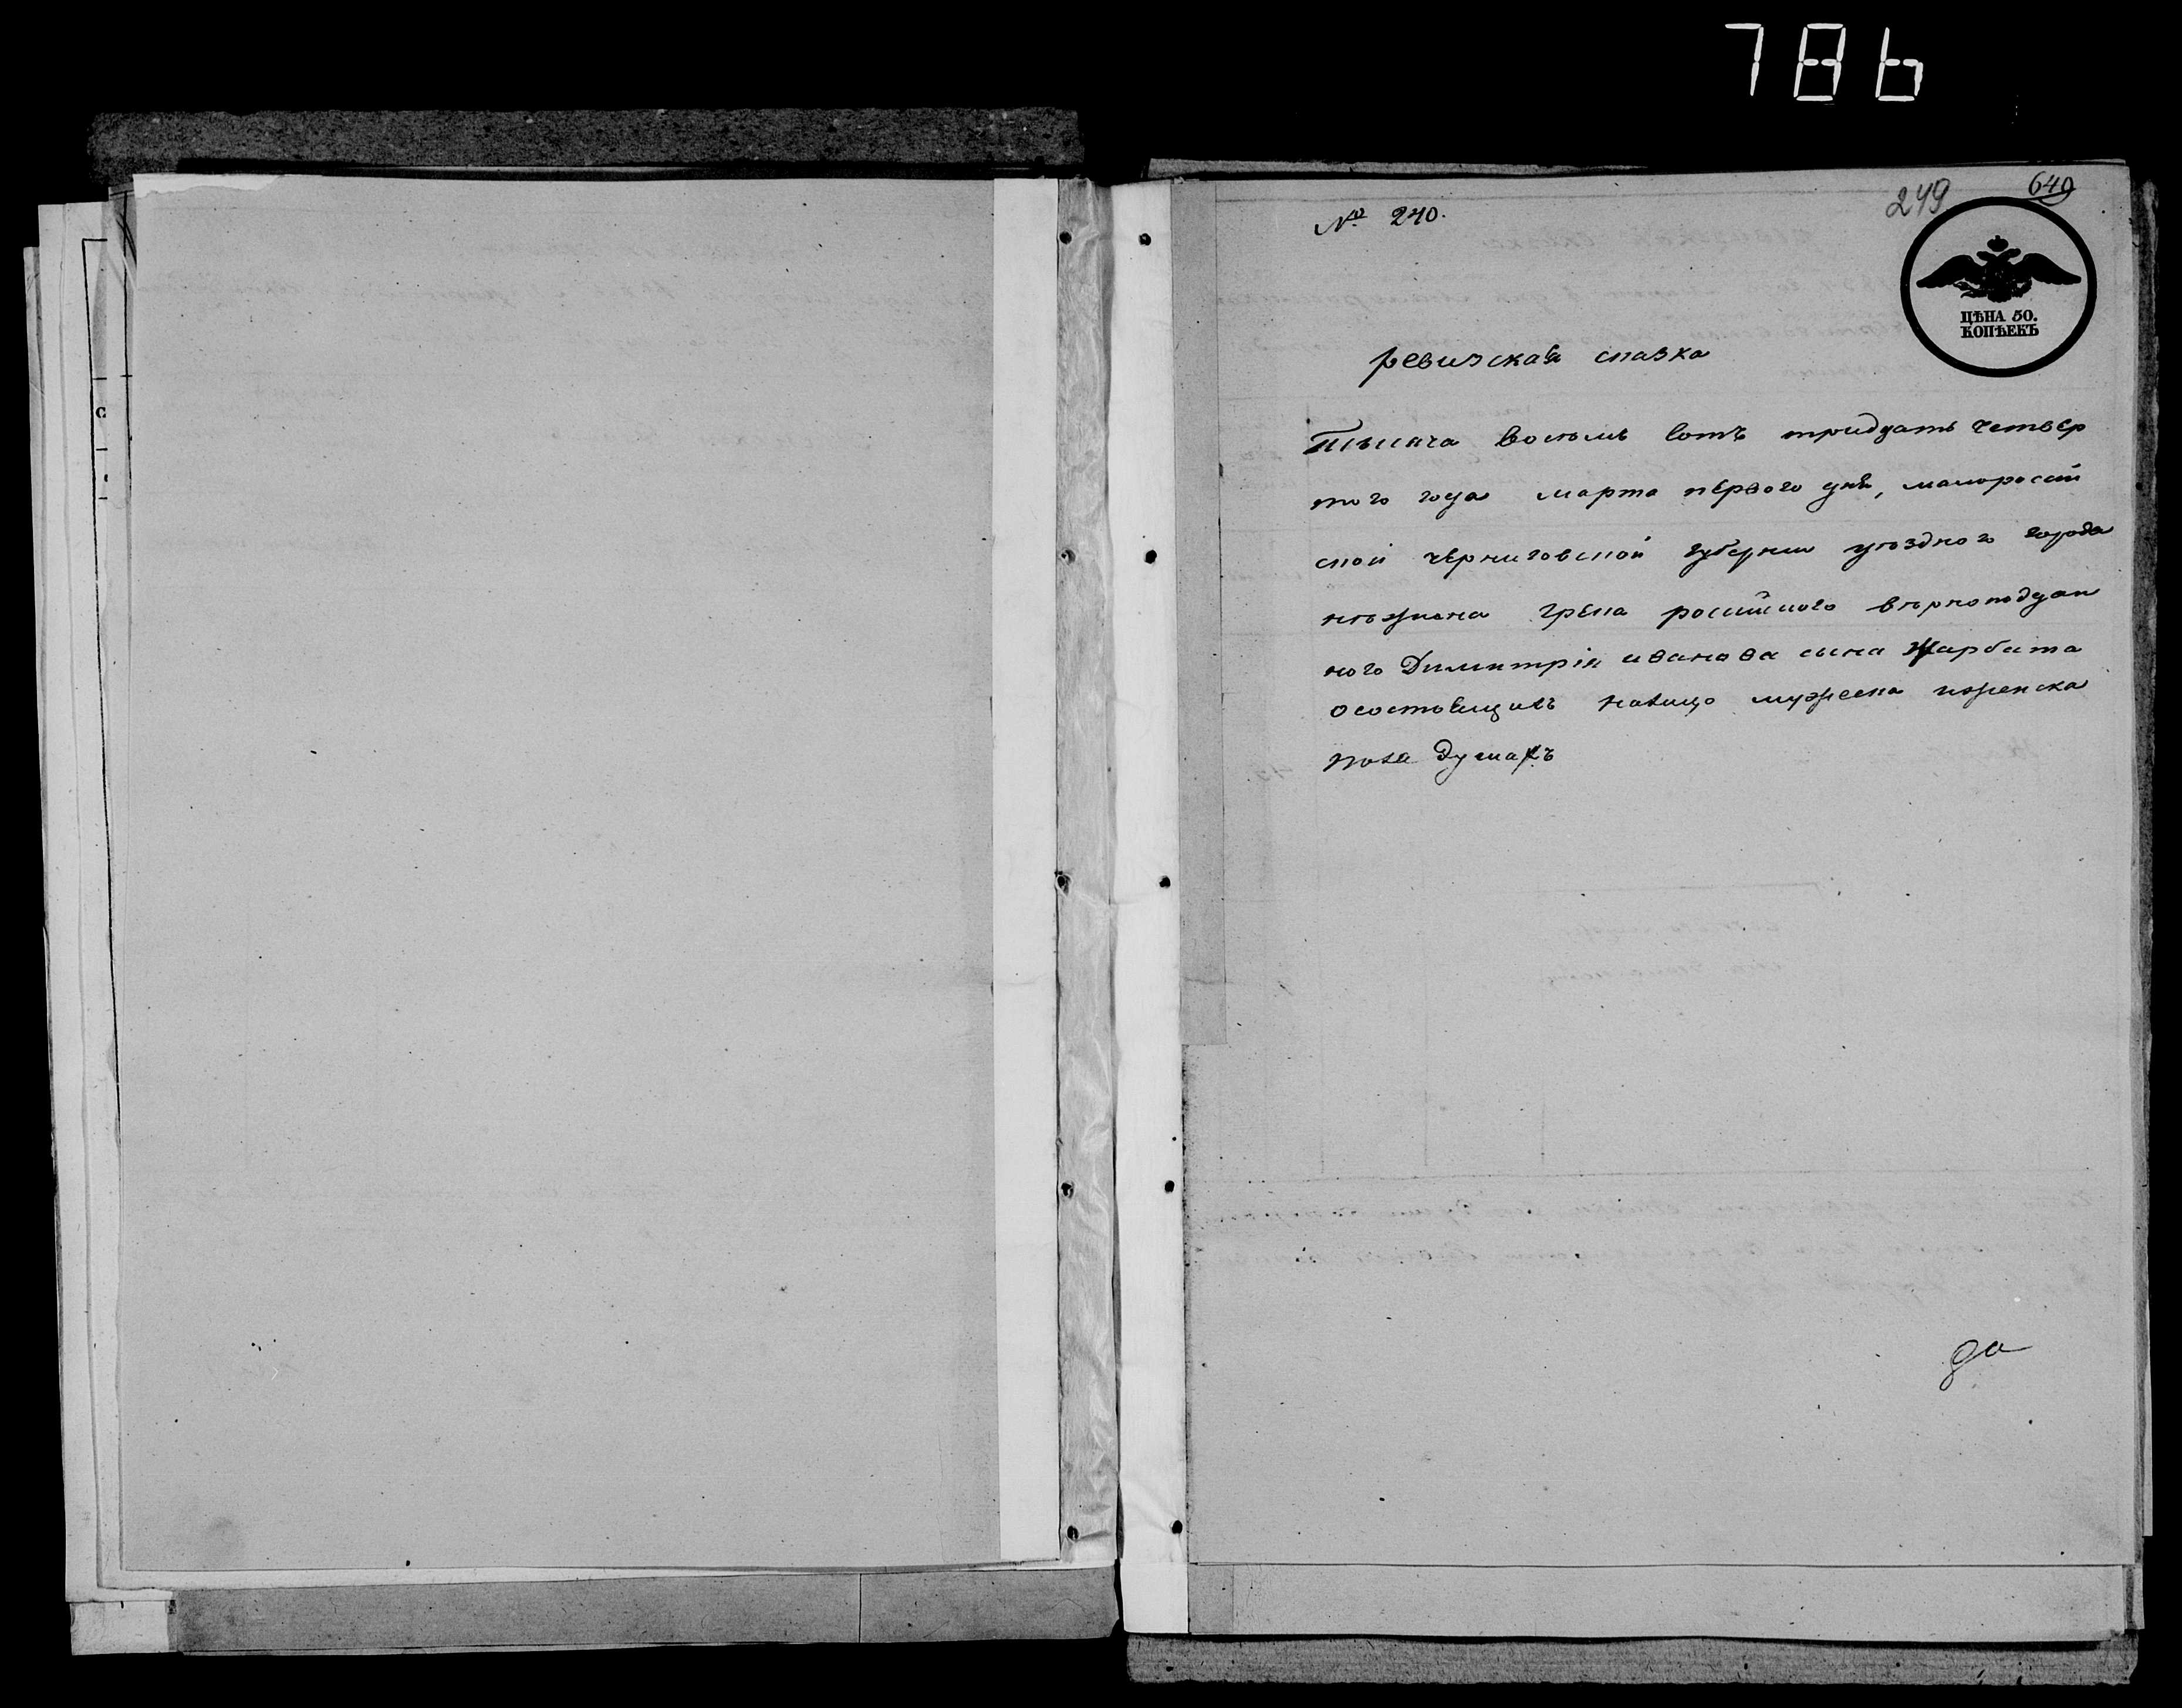 786
№ 240.
249
649
ЦѢНА 50.
КОПѢЕКЪ
ревизская сказка
Тысяча восемь сотъ тридцать четвер
того года марта первого дня, малоросій
ской черниговской губерніи уезднога города
нѣжина грека російского вѣрноподдан
ного Димитрія иванова сына Жарбата
осостоящихъ налицо мужеска иженска
пола душахъ
да